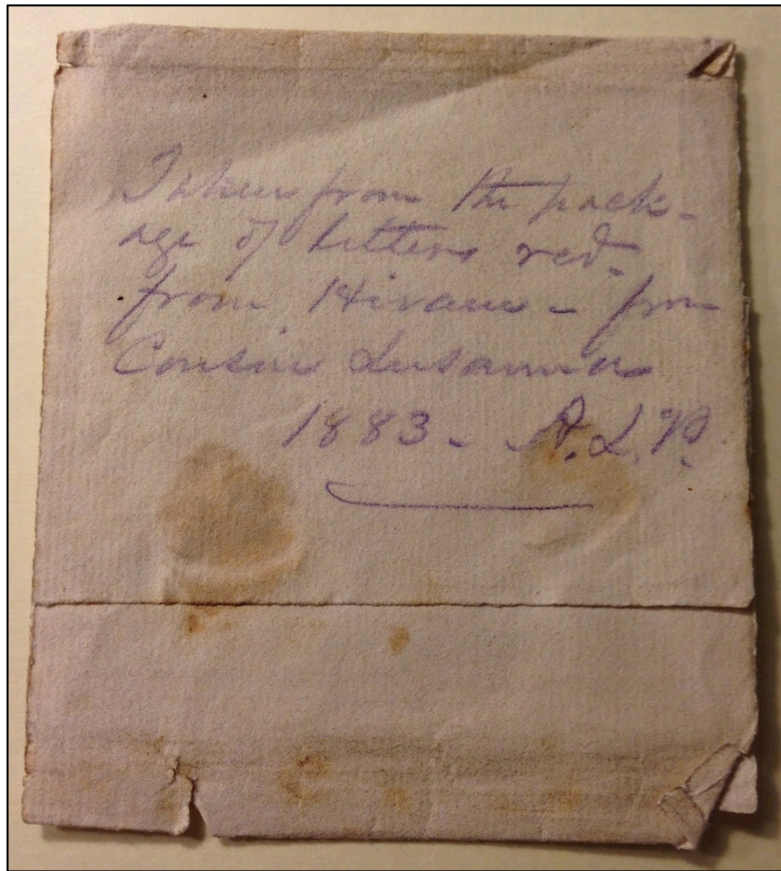 Taken from the pack-
age of letters recd.
from Hiram - from
Cousin Susanna
1883 - A. L. P.